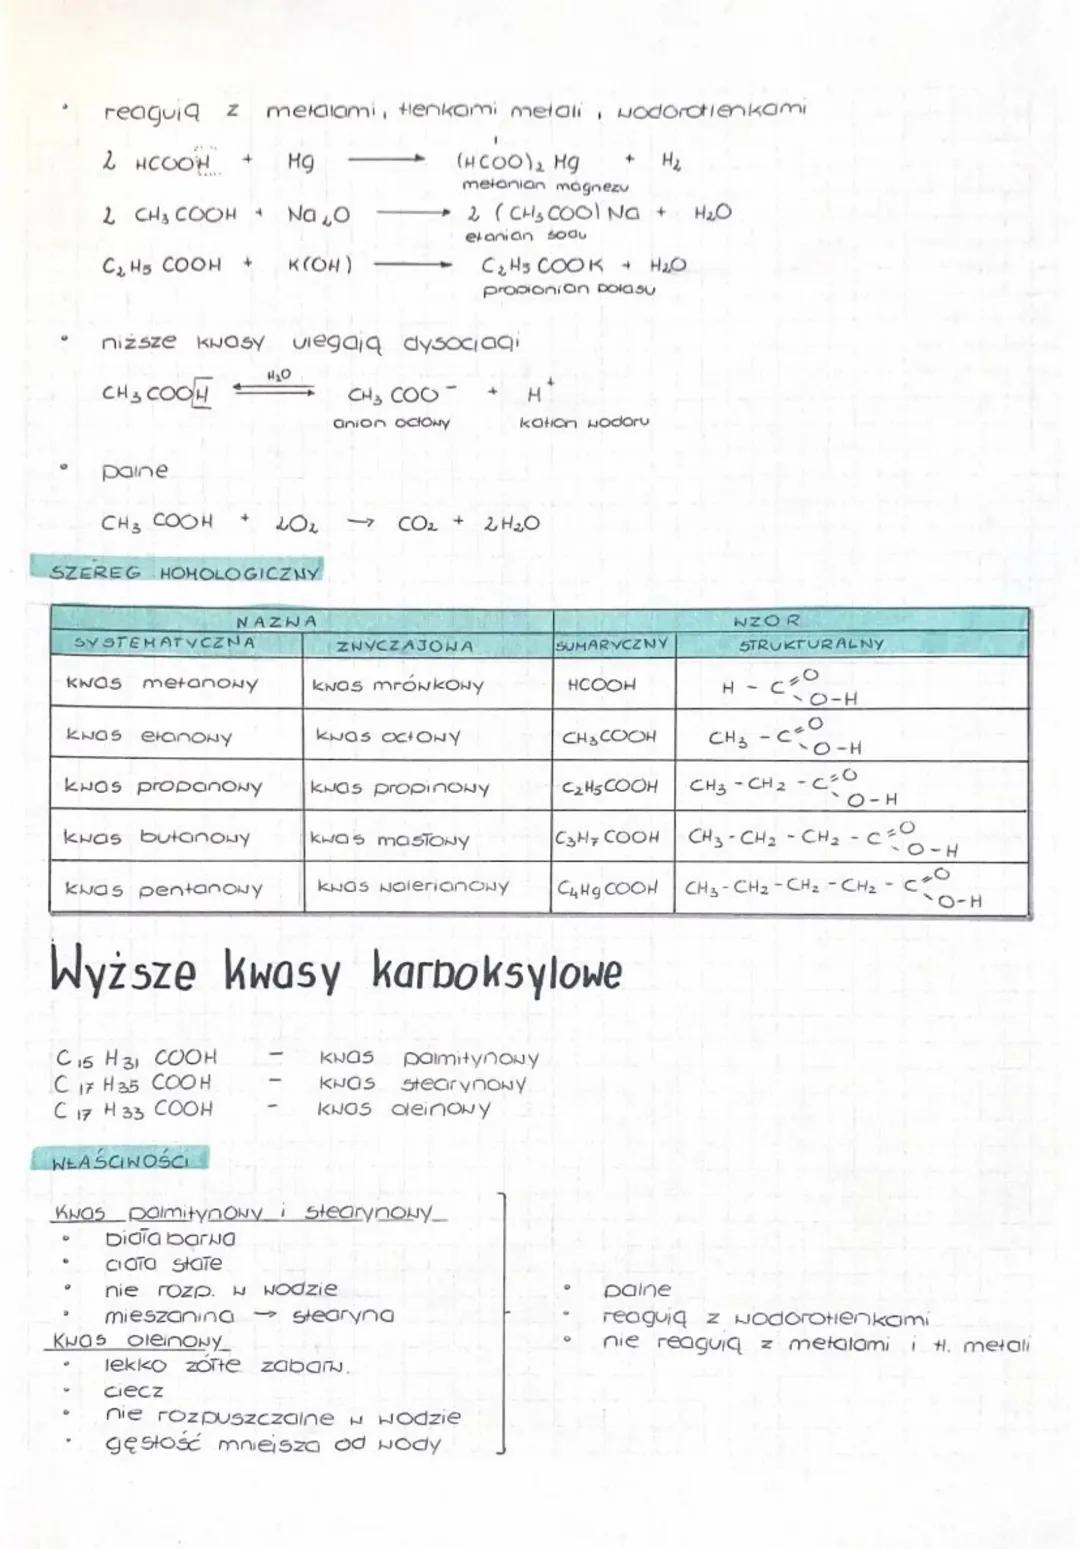 • reagują z metalami, tlenkami metali, wodorotlenkami
2 HCOOH + Mg ⟶ (HCOO)₂ Mg + H₂
metanian magnezu
2 CH₃COOH + Na₂O ⟶ 2 (CH₃COO) Na + H₂O
etanian sodu
C₂H₅COOH + K(OH) ⟶ C₂H₅COOK + H₂O
propionian potasu
• niższe kwasy ulegają dysocjacji
CH₃COOH ⇌ H₂O CH₃COO⁻ + H⁺
anion octowy kation wodoru
• palne
CH₃COOH + 2O₂ → CO₂ + 2H₂O
SZEREG HOMOLOGICZNY
NAZWA WZOR
SYSTEMATYCZNA ZWYCZAJOWA SUMARYCZNY STRUKTURALNY
kwas metanowy kwas mrówkowy HCOOH H - C=O O-H
kwas etanowy kwas octowy CH₃COOH CH₃ - C=O O-H
kwas propanowy kwas propinowy C₂H₅COOH CH₃ - CH₂ - C=O O-H
kwas butanowy kwas masłowy C₃H₇COOH CH₃ - CH₂ - CH₂ - C=O O-H
kwas pentanowy kwas walerianowy C₄H₉COOH CH₃ - CH₂ - CH₂ - CH₂ - C=O O-H
Wyższe kwasy karboksylowe
C₁₅H₃₁COOH - kwas palmitynowy
C₁₇H₃₅COOH - kwas stearynowy
C₁₇H₃₃COOH - kwas oleinowy
WŁAŚCIWOŚCI
Kwas palmitynowy i stearynowy
• biała barwa
• ciała stałe
• nie rozp. w wodzie
• mieszanina → stearyna
Kwas oleinowy
• lekko żółte zabarw.
• ciecz
• nie rozpuszczalne w wodzie
• gęstość mniejsza od wody
• palne
• reagują z wodorotlenkami
• nie reagują z metalami i tl. metali